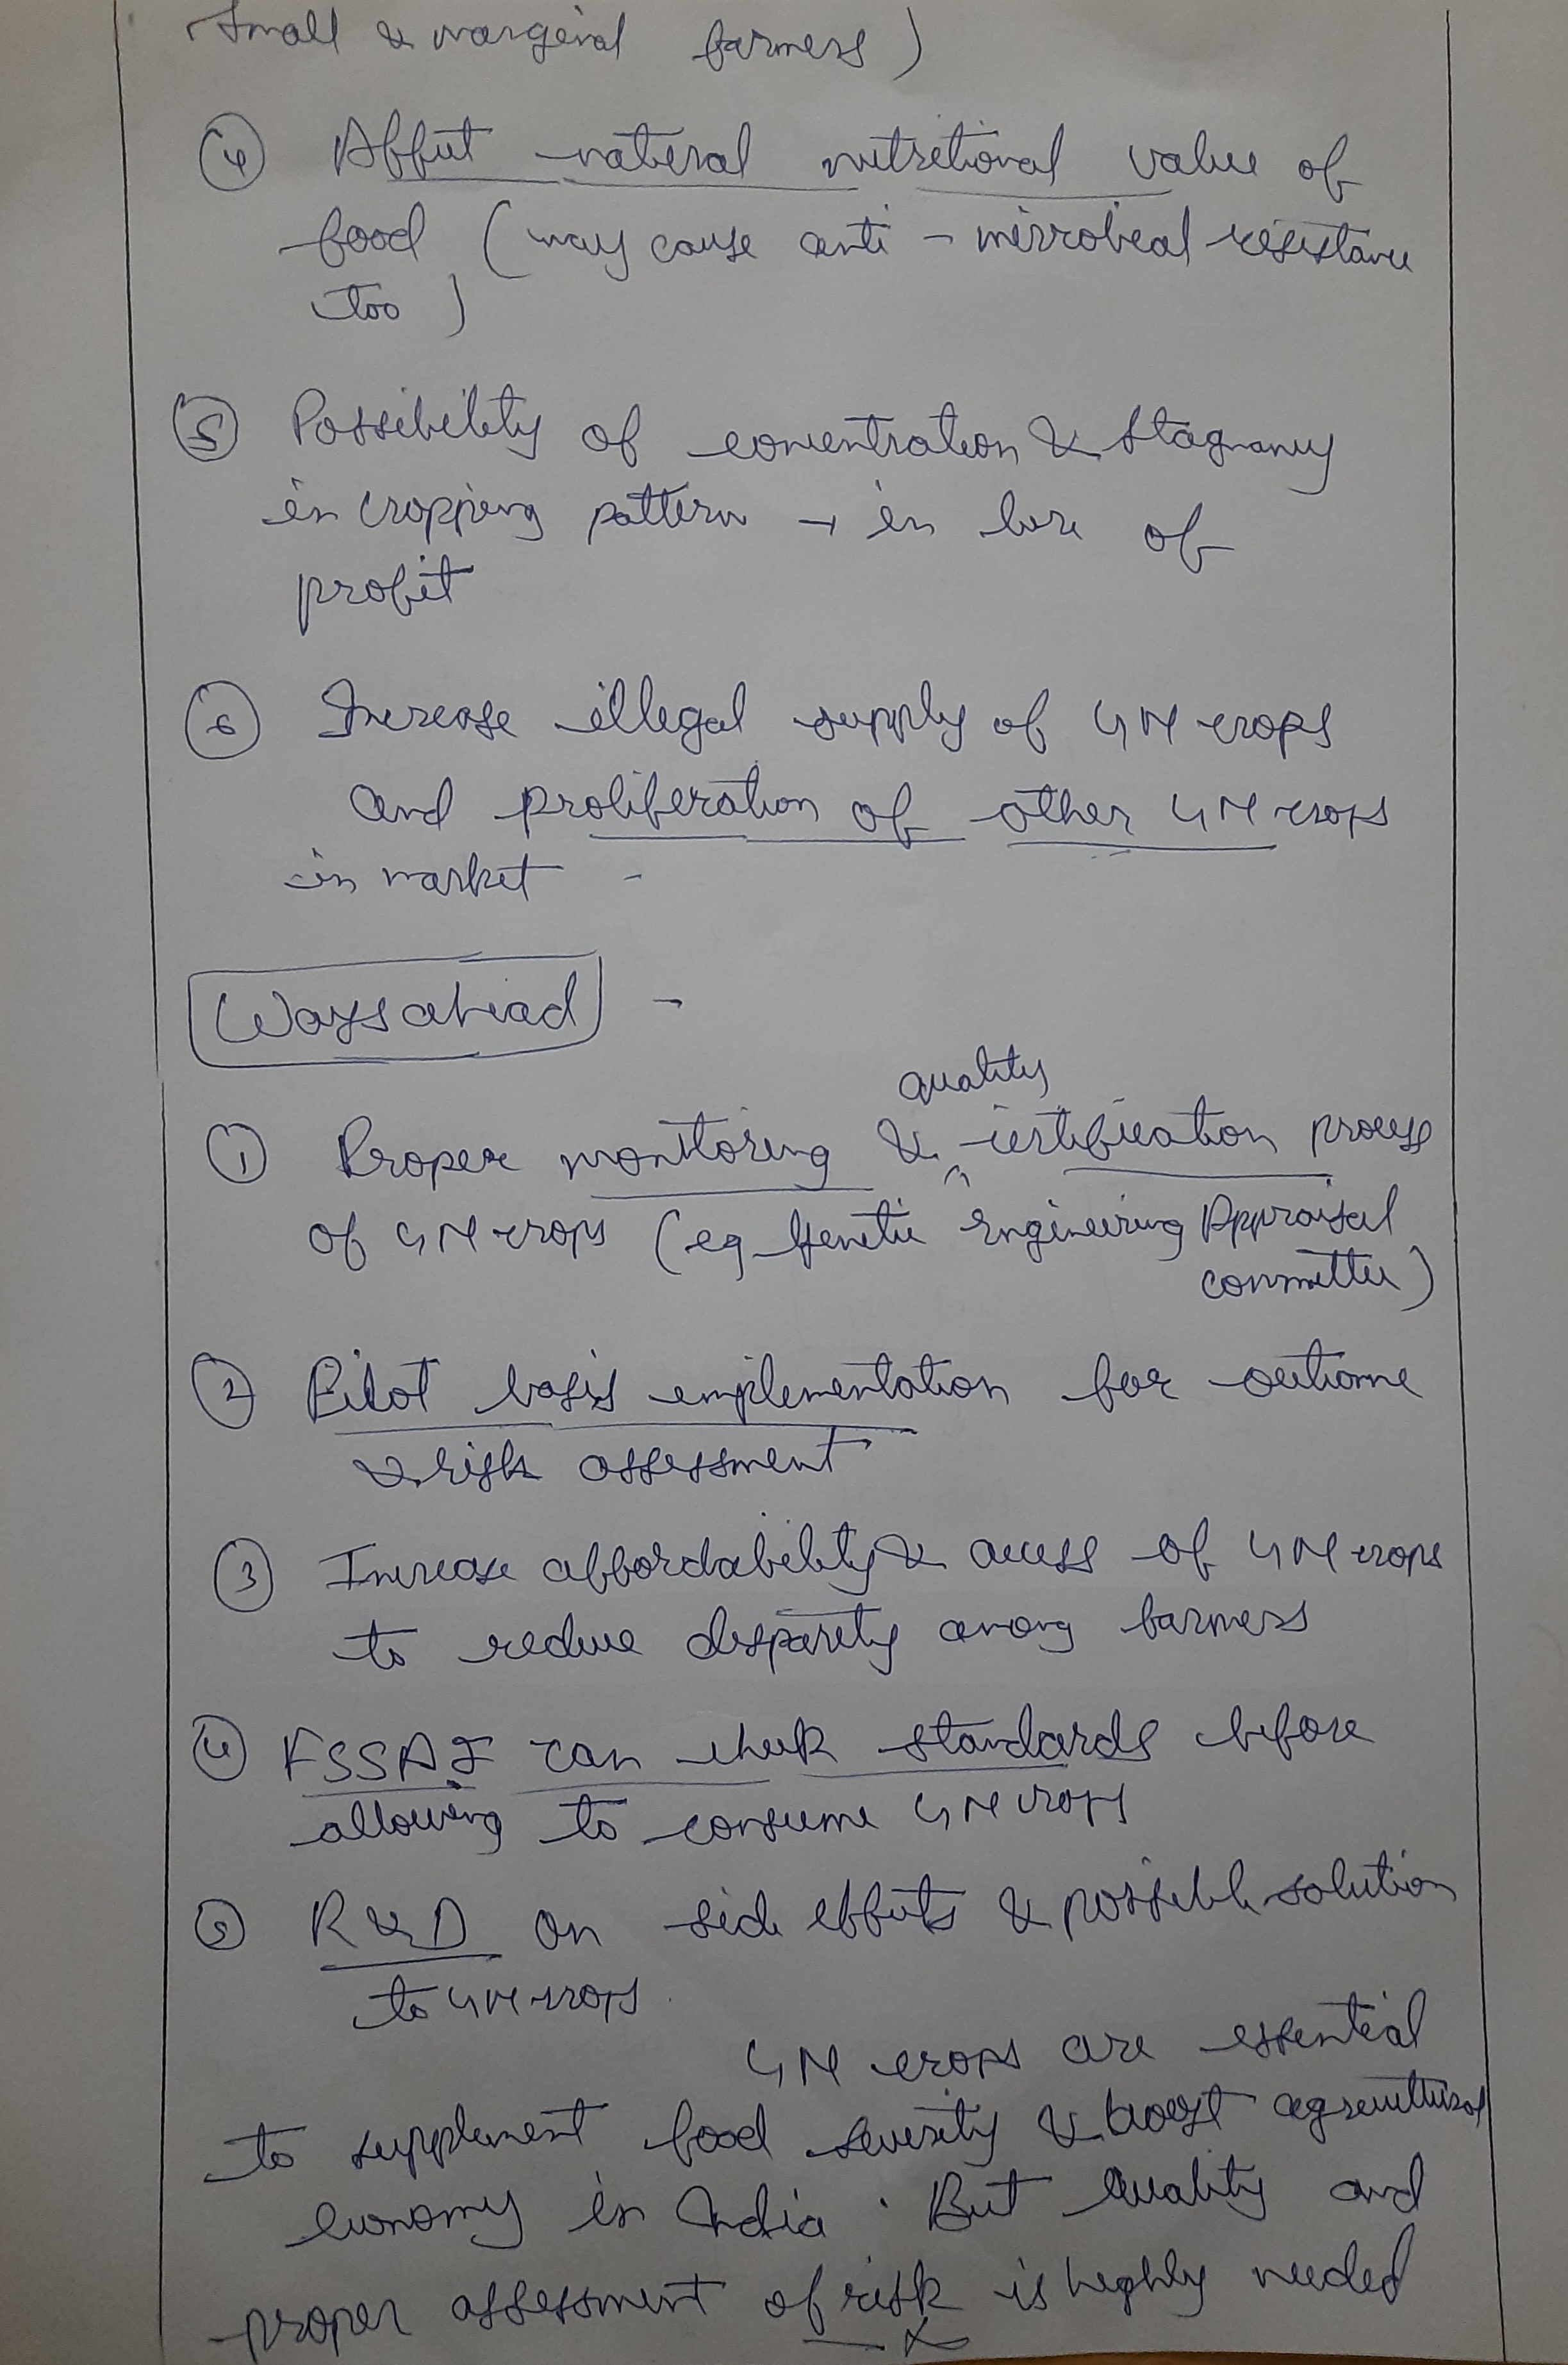 small & marginal farmers)
④ Affect natural nutritional value of
food (may cause anti-microbial resistance
too)
⑤ Possibility of concentration & stagnancy
in cropping pattern → in lure of
profit
⑥ Increase illegal supply of GM crops
and proliferation of other GM crops
in market -
Ways ahead -
quality
① Proper monitoring & ^ certification process
of GM crops (eg Genetic Engineering Appraisal
committee)
② Pilot basis implementation for outcome
& risk assessment
③ Increase affordability & access of GM crops
to reduce disparity among farmers
④ FSSAI can check standards before
allowing to consume GM crops
⑤ R&D on side effects & possible solution
to GM crops.
GM crops are essential
to supplement food security & boost agricultural
economy in India. But quality and
proper assessment of risk is highly needed